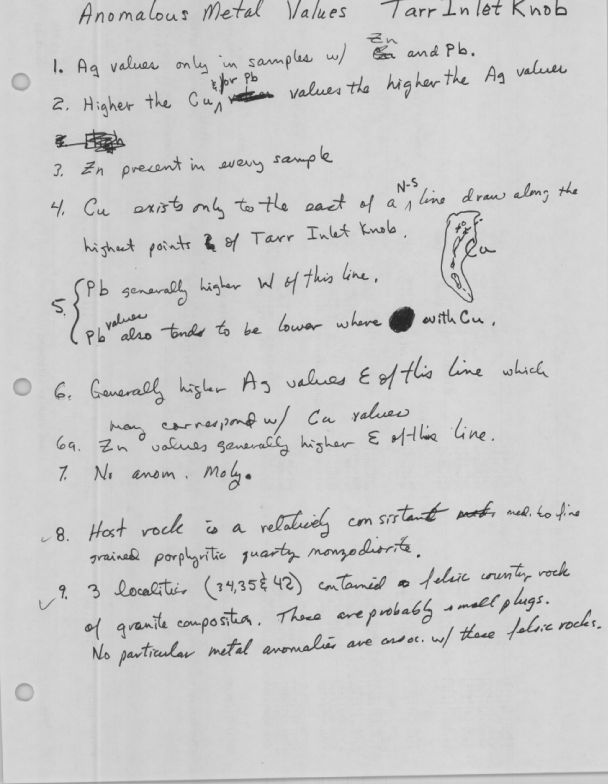 Anomalous Metal Values Tarr Inlet Knob
1. Ag values only in samples w/ Zn and Pb.
2. Higher the Cu, &/or Pb values the higher the Ag values
3. Zn present in every sample
4. Cu exists only to the east of a N-S line draw along the
highest points of Tarr Inlet Knob.
Cu
5. Pb generally higher W of this line.
Pb values also tends to be lower where with Cu.
6. Generally higher Ag values E of this line which
may correspond w/ Cu values
6a. Zn values generally higher E of this line.
7. No anom. Moly.
8. Host rock is a relatively consistant med. to fine
grained porphyritic quartz monzodiorite.
9. 3 localities (34, 35 & 42) contained felsic country rock
of granite composition. These are probably small plugs.
No particular metal anomalies are assoc. w/ these felsic rocks.